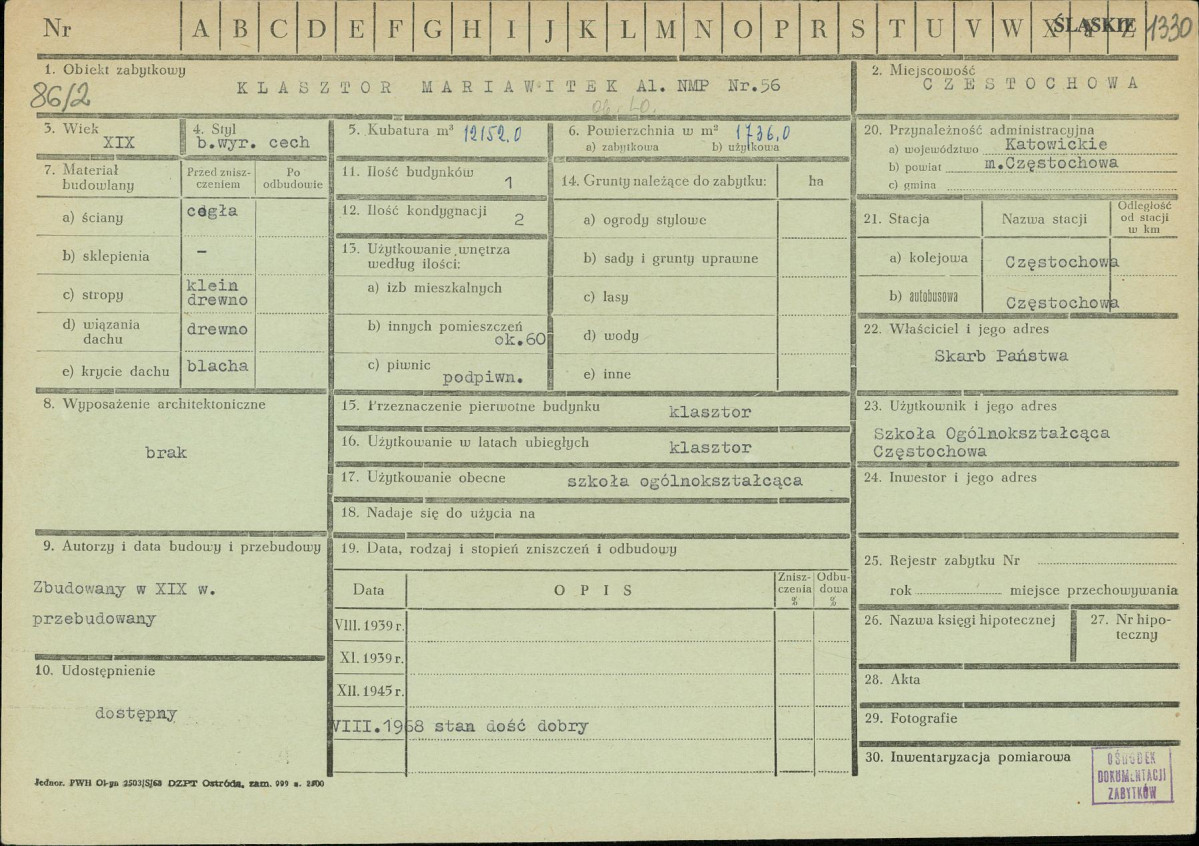 Nr A B C D E F G H I J K L M N O P R S T U V W X Y Z ŚLĄSKIE 1330
1. Obiekt zabytkowy
86/2
KLASZTOR MARIAWITEK Al. NMP Nr.56
2. Miejscowość
CZESTOCHOWA
3. Wiek
XIX
4. Styl
b.wyr. cech
5. Kubatura m³ 12152.0
6. Powierzchnia w m² 1736.0
a) zabytkowa b) użytkowa
7. Materiał budowlany
Przed zniszczeniem
Po odbudowie
a) ściany cegła
b) sklepienia –
c) stropy klein
drewno
d) wiązania
dachu drewno
e) krycie dachu blacha
8. Wyposażenie architektoniczne
brak
9. Autorzy i data budowy i przebudowy
Zbudowany w XIX w.
przebudowany
10. Udostępnienie
dostępny
11. Ilość budynków 1
12. Ilość kondygnacji 2
13. Użytkowanie wnętrza
według ilości:
a) izb mieszkalnych
b) innych pomieszczeń
ok.60
c) piwnic
podpiwn.
14. Grunty należące do zabytku: ha
a) ogrody stylowe
b) sady i grunty uprawne
c) lasy
d) wody
e) inne
15. Przeznaczenie pierwotne budynku klasztor
16. Użytkowanie w latach ubiegłych klasztor
17. Użytkowanie obecne szkoła ogólnokształcąca
18. Nadaje się do użycia na
19. Data, rodzaj i stopień zniszczeń i odbudowy
Data OPIS Zniszczenia % Odbudowa %
VIII. 1939 r.
XI. 1939 r.
XII. 1945 r.
VIII.1968 stan dość dobry
20. Przynależność administracyjna
a) województwo Katowickie
b) powiat m.Częstochowa
c) gmina
21. Stacja Nazwa stacji Odległość
od stacji
w km
a) kolejowa Częstochowa
b) autobusowa Częstochowa
22. Właściciel i jego adres
Skarb Państwa
23. Użytkownik i jego adres
Szkoła Ogólnokształcąca
Częstochowa
24. Inwestor i jego adres
25. Rejestr zabytku Nr
rok miejsce przechowywania
26. Nazwa księgi hipotecznej
27. Nr hipo-
teczny
28. Akta
29. Fotografie
30. Inwentaryzacja pomiarowa
OŚRODEK
DOKUMENTACJI
ZABYTKÓW
Jednor. PWH Ol-pn 2503/S/68 DZPT Ostróda, zam. 999 n. 2500